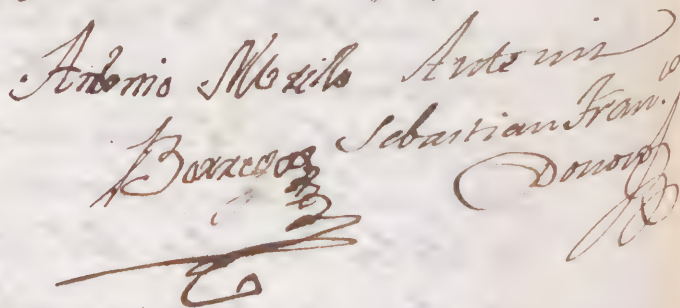 Antonio Murillo Antonio
Barreda Sebastian Fran.co
Donoso